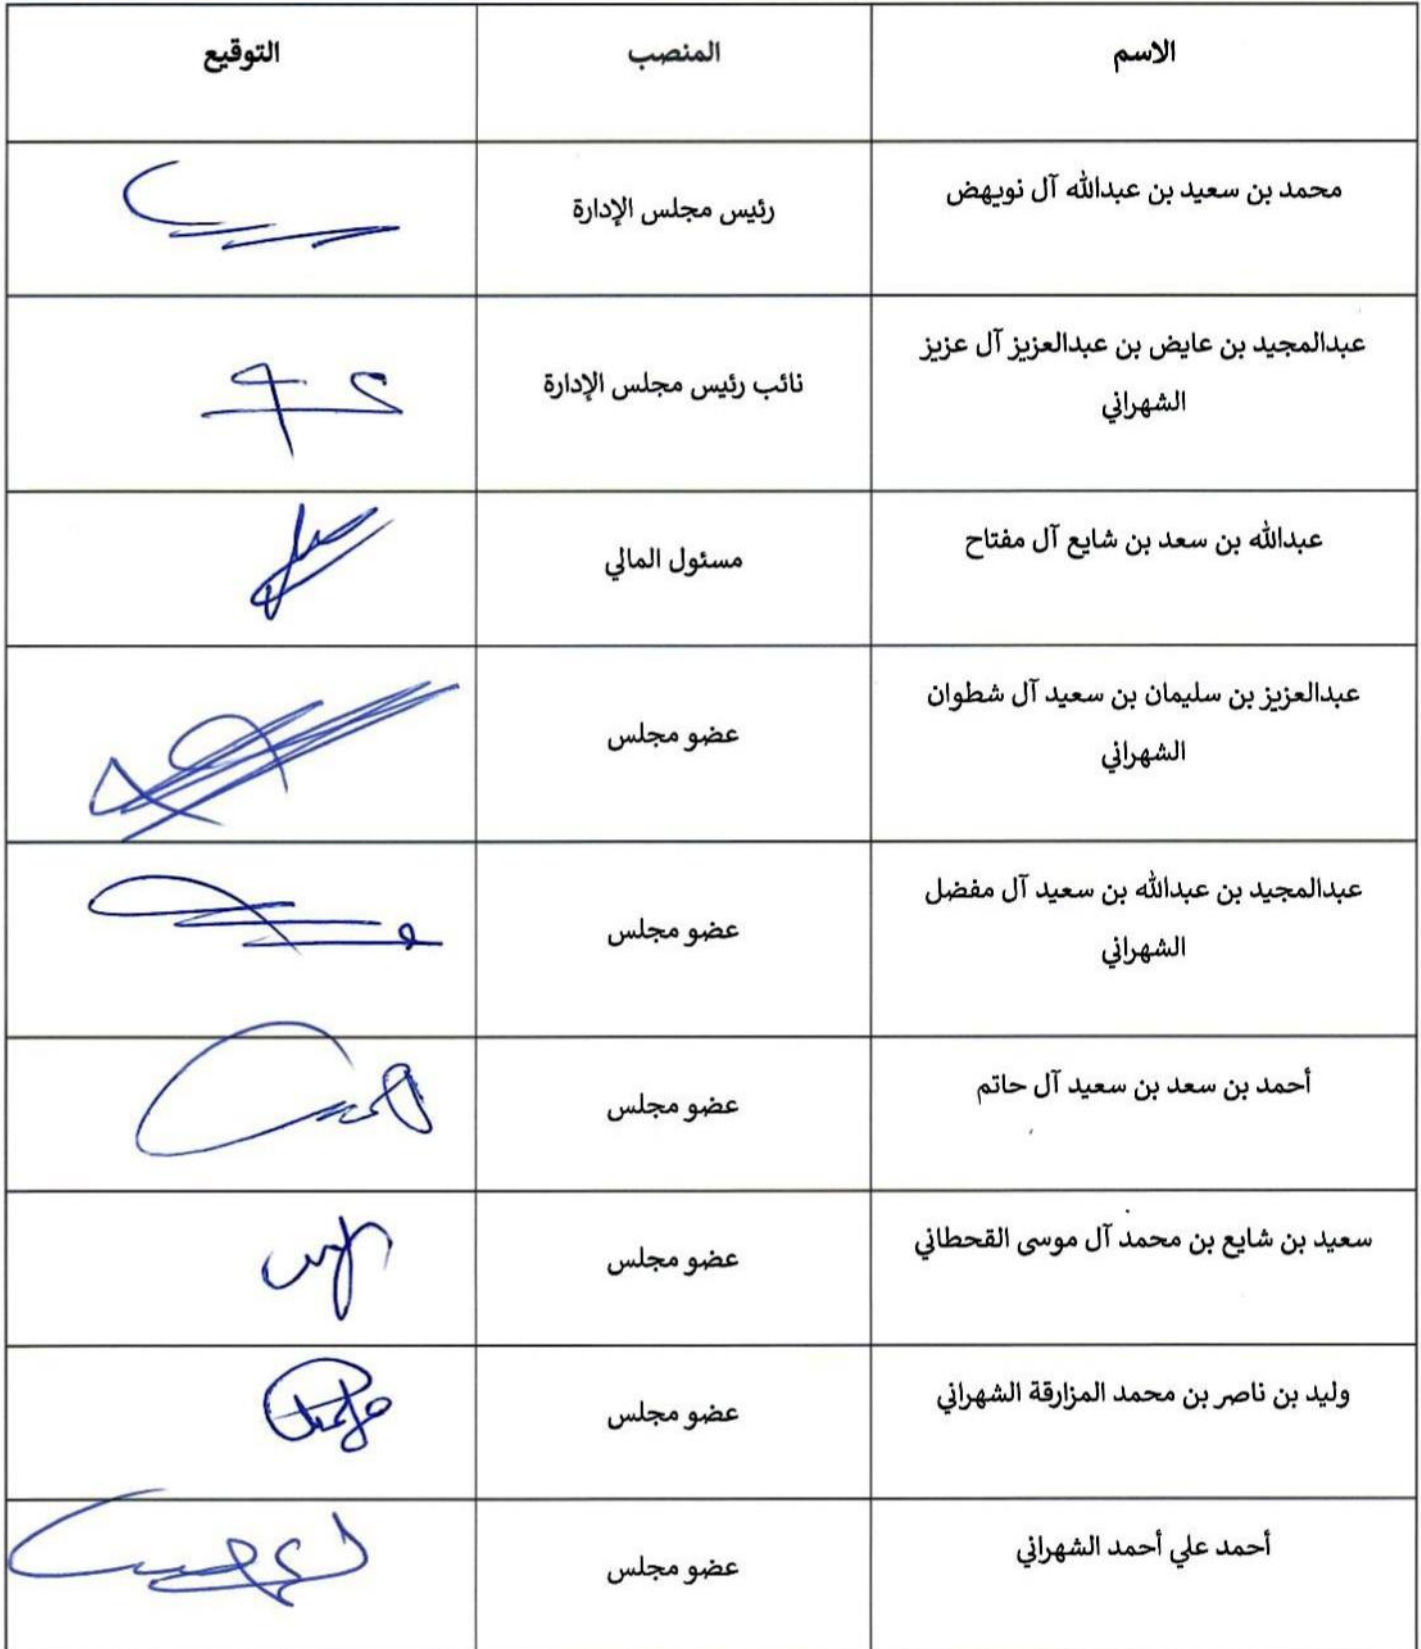 الاسم المنصب التوقيع
محمد بن سعيد بن عبدالله آل نويهض رئيس مجلس الإدارة
عبدالمجيد بن عايض بن عبدالعزيز آل عزيز
الشهراني نائب رئيس مجلس الإدارة
عبدالله بن سعد بن شايع آل مفتاح مسئول المالي
عبدالعزيز بن سليمان بن سعيد آل شطوان
الشهراني عضو مجلس
عبدالمجيد بن عبدالله بن سعيد آل مفضل
الشهراني عضو مجلس
أحمد بن سعد بن سعيد آل حاتم عضو مجلس
سعيد بن شايع بن محمد آل موسى القحطاني عضو مجلس
وليد بن ناصر بن محمد المزارقة الشهراني عضو مجلس
أحمد علي أحمد الشهراني عضو مجلس